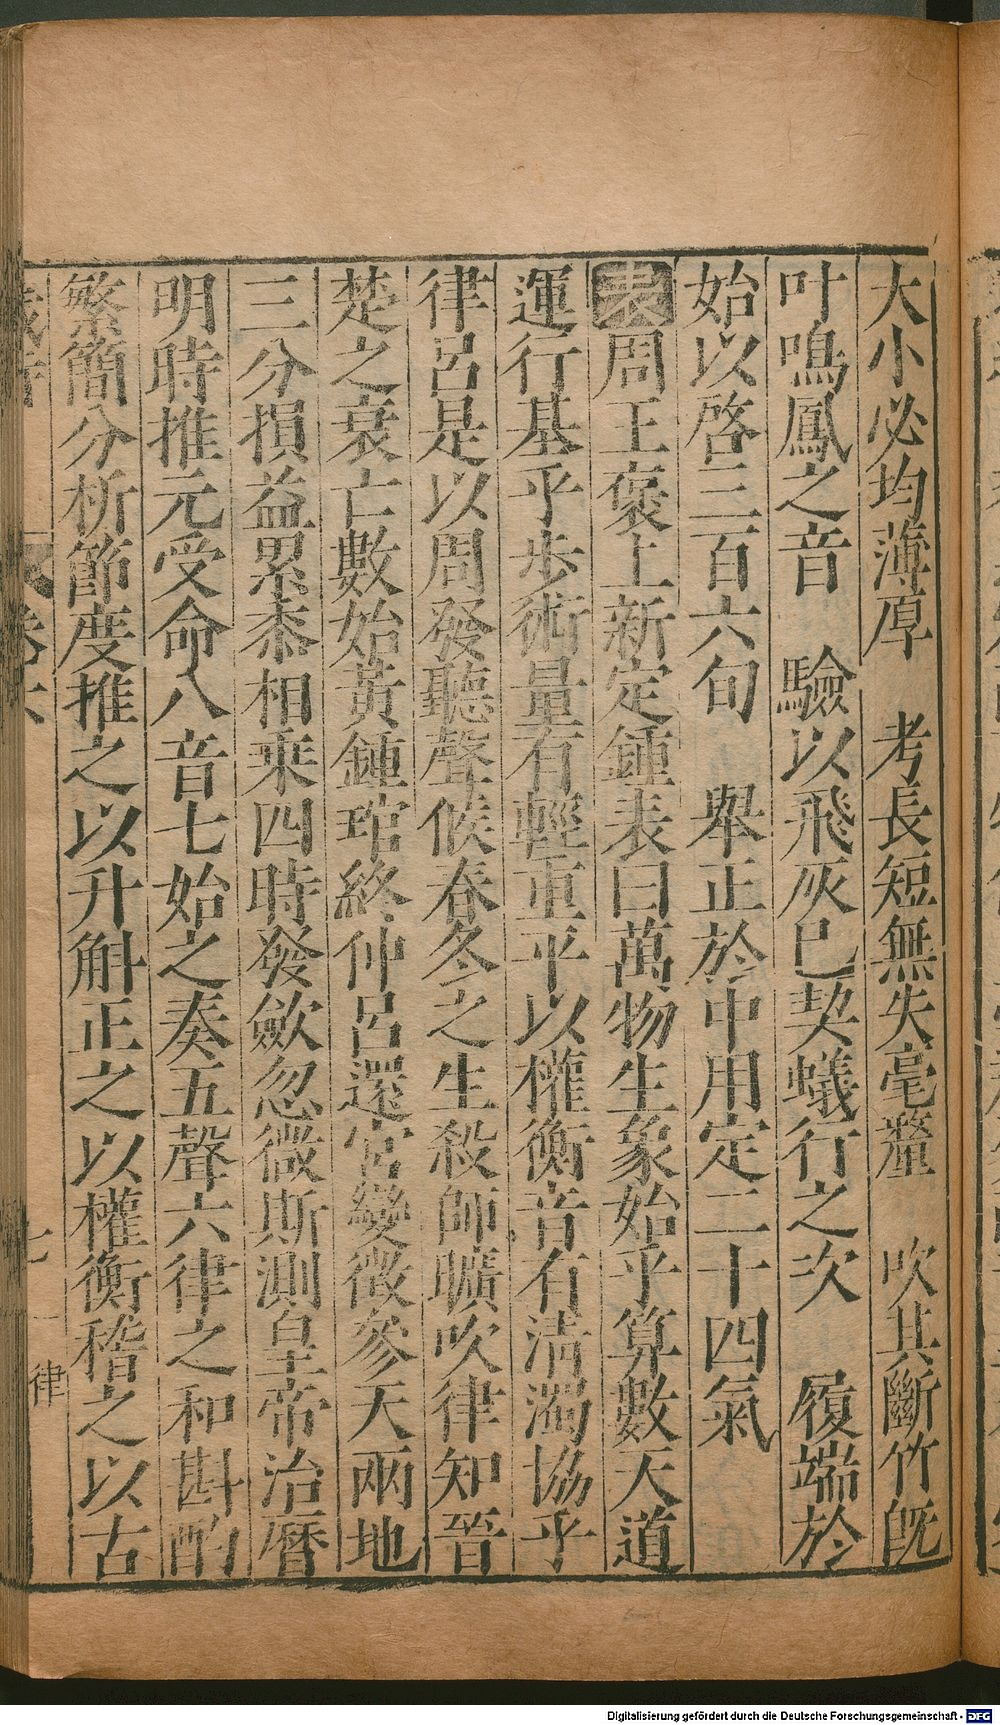 大小必均薄厚　考長短無失毫釐　吹其斷竹旣
叶鳴鳳之音　驗以飛灰巳契蟻行之次　履端於
始以啓三百六旬　舉正於中用定二十四氣
表周王褒上新定鍾表曰萬物生象始乎算數天道
運行基乎步術量有輕重平以權衡音有淸濁協乎
律呂是以周發聽聲候春冬之生殺師曠吹律知晉
楚之衰亡數始黃鍾琯終仲呂還宮變徵參天兩地
三分損益累黍相乘四時發歛忽微斯測皇帝治曆
明時推元受命八音七始之奏五聲六律之和斟酌
繁簡分析節度推之以升斛正之以權衡稽之以古
卷六
七
律
Digitalisierung gefördert durch die Deutsche Forschungsgemeinschaft - DFG